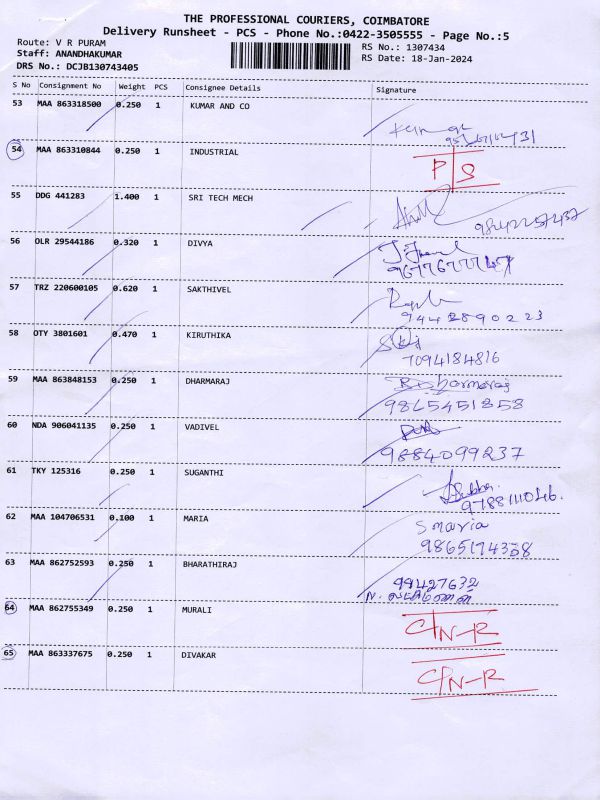 THE PROFESSIONAL COURIERS, COIMBATORE
Delivery Runsheet - PCS - Phone No.:0422-3505555 - Page No.:5
Route: V R PURAM
RS No.: 1307434
Staff: ANANDHAKUMAR
RS Date: 18-Jan-2024
DRS No.: DCJB130743405
S No Consignment No Weight PCS Consignee Details Signature
53 MAA 863318500 0.250 1 KUMAR AND CO
54 MAA 863310844 0.250 1 INDUSTRIAL P/S
55 DDG 441283 1.400 1 SRI TECH MECH
9842257437
56 OLR 29544186 0.320 1 DIVYA
57 TRZ 220600105 0.620 1 SAKTHIVEL
9442890223
58 OTY 3801601 0.470 1 KIRUTHIKA
7094184816
59 MAA 863848153 0.250 1 DHARMARAJ B. Dharmaraj
9865451858
60 NDA 906041135 0.250 1 VADIVEL
9884099237
61 TKY 125316 0.250 1 SUGANTHI
9788111046.
62 MAA 104706531 0.100 1 MARIA S maria
63 MAA 862752593 0.250 1 BHARATHIRAJ
64 MAA 862755349 0.250 1 MURALI C/N-R
65 MAA 863337675 0.250 1 DIVAKAR C/N-R